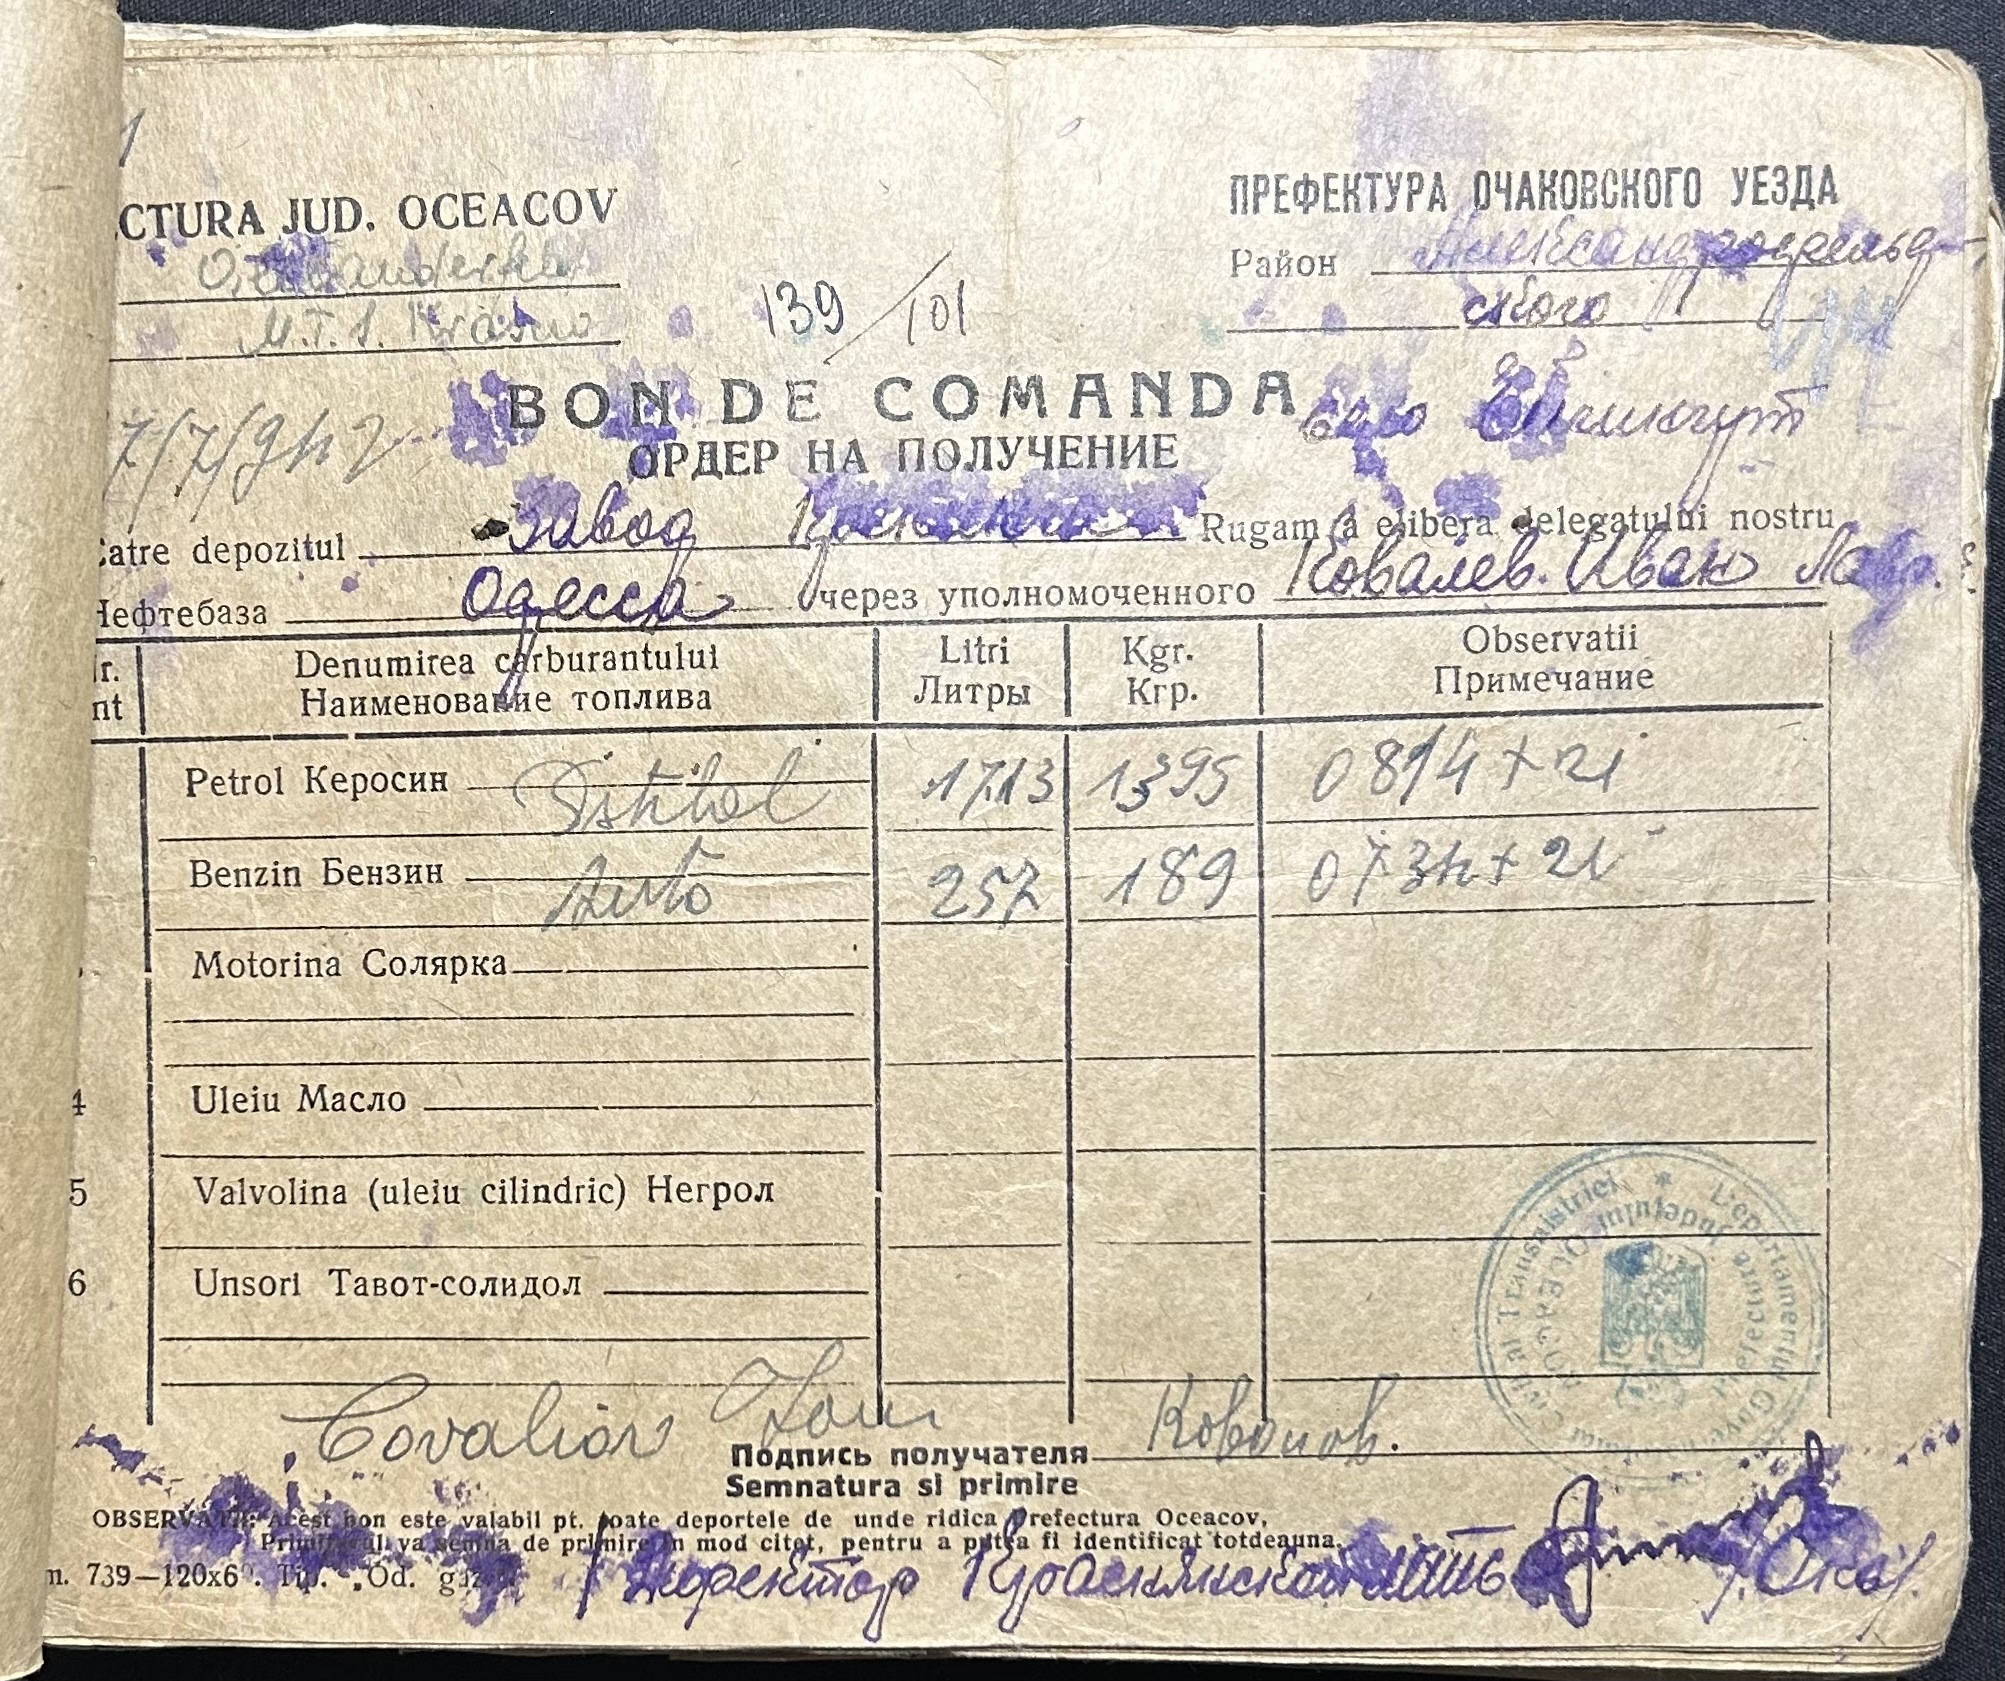 CTURA JUD. OCEACOV
M.T.S. Krasno
ПРЕФЕКТУРА ОЧАКОВСКОГО УЕЗДА
Район Александрфельд-
ского
139/101
BON DE COMANDA
ОРДЕР НА ПОЛУЧЕНИЕ
7/7/942
Catre depozitul завод Rugam a elibera delegatului nostru
Нефтебаза Одесса через уполномоченного Ковалев Иван
Denumirea carburantului Litri Kgr. Observatii
nt Наименование топлива Литры Кгр. Примечание
Petrol Керосин 1713 1395 0814+21
Benzin Бензин Auto 257 189 0734+21
Motorina Солярка
4 Uleiu Масло
5 Valvolina (uleiu cilindric) Негрол
6 Unsori Тавот-солидол
Departamentul Guvernamantul Civil al Transnistriei
Prefectura Judetului OCEACOV
Covaliov
Подпись получателя
Semnatura si primire
OBSERVATII: Acest bon este valabil pt. toate deportele de unde ridica Prefectura Oceacov,
Primitorul va semna de primire in mod citet, pentru a putea fi identificat totdeauna.
m. 739—120x6 . Tip. „Od. gaz
Директор Краснянской МТС